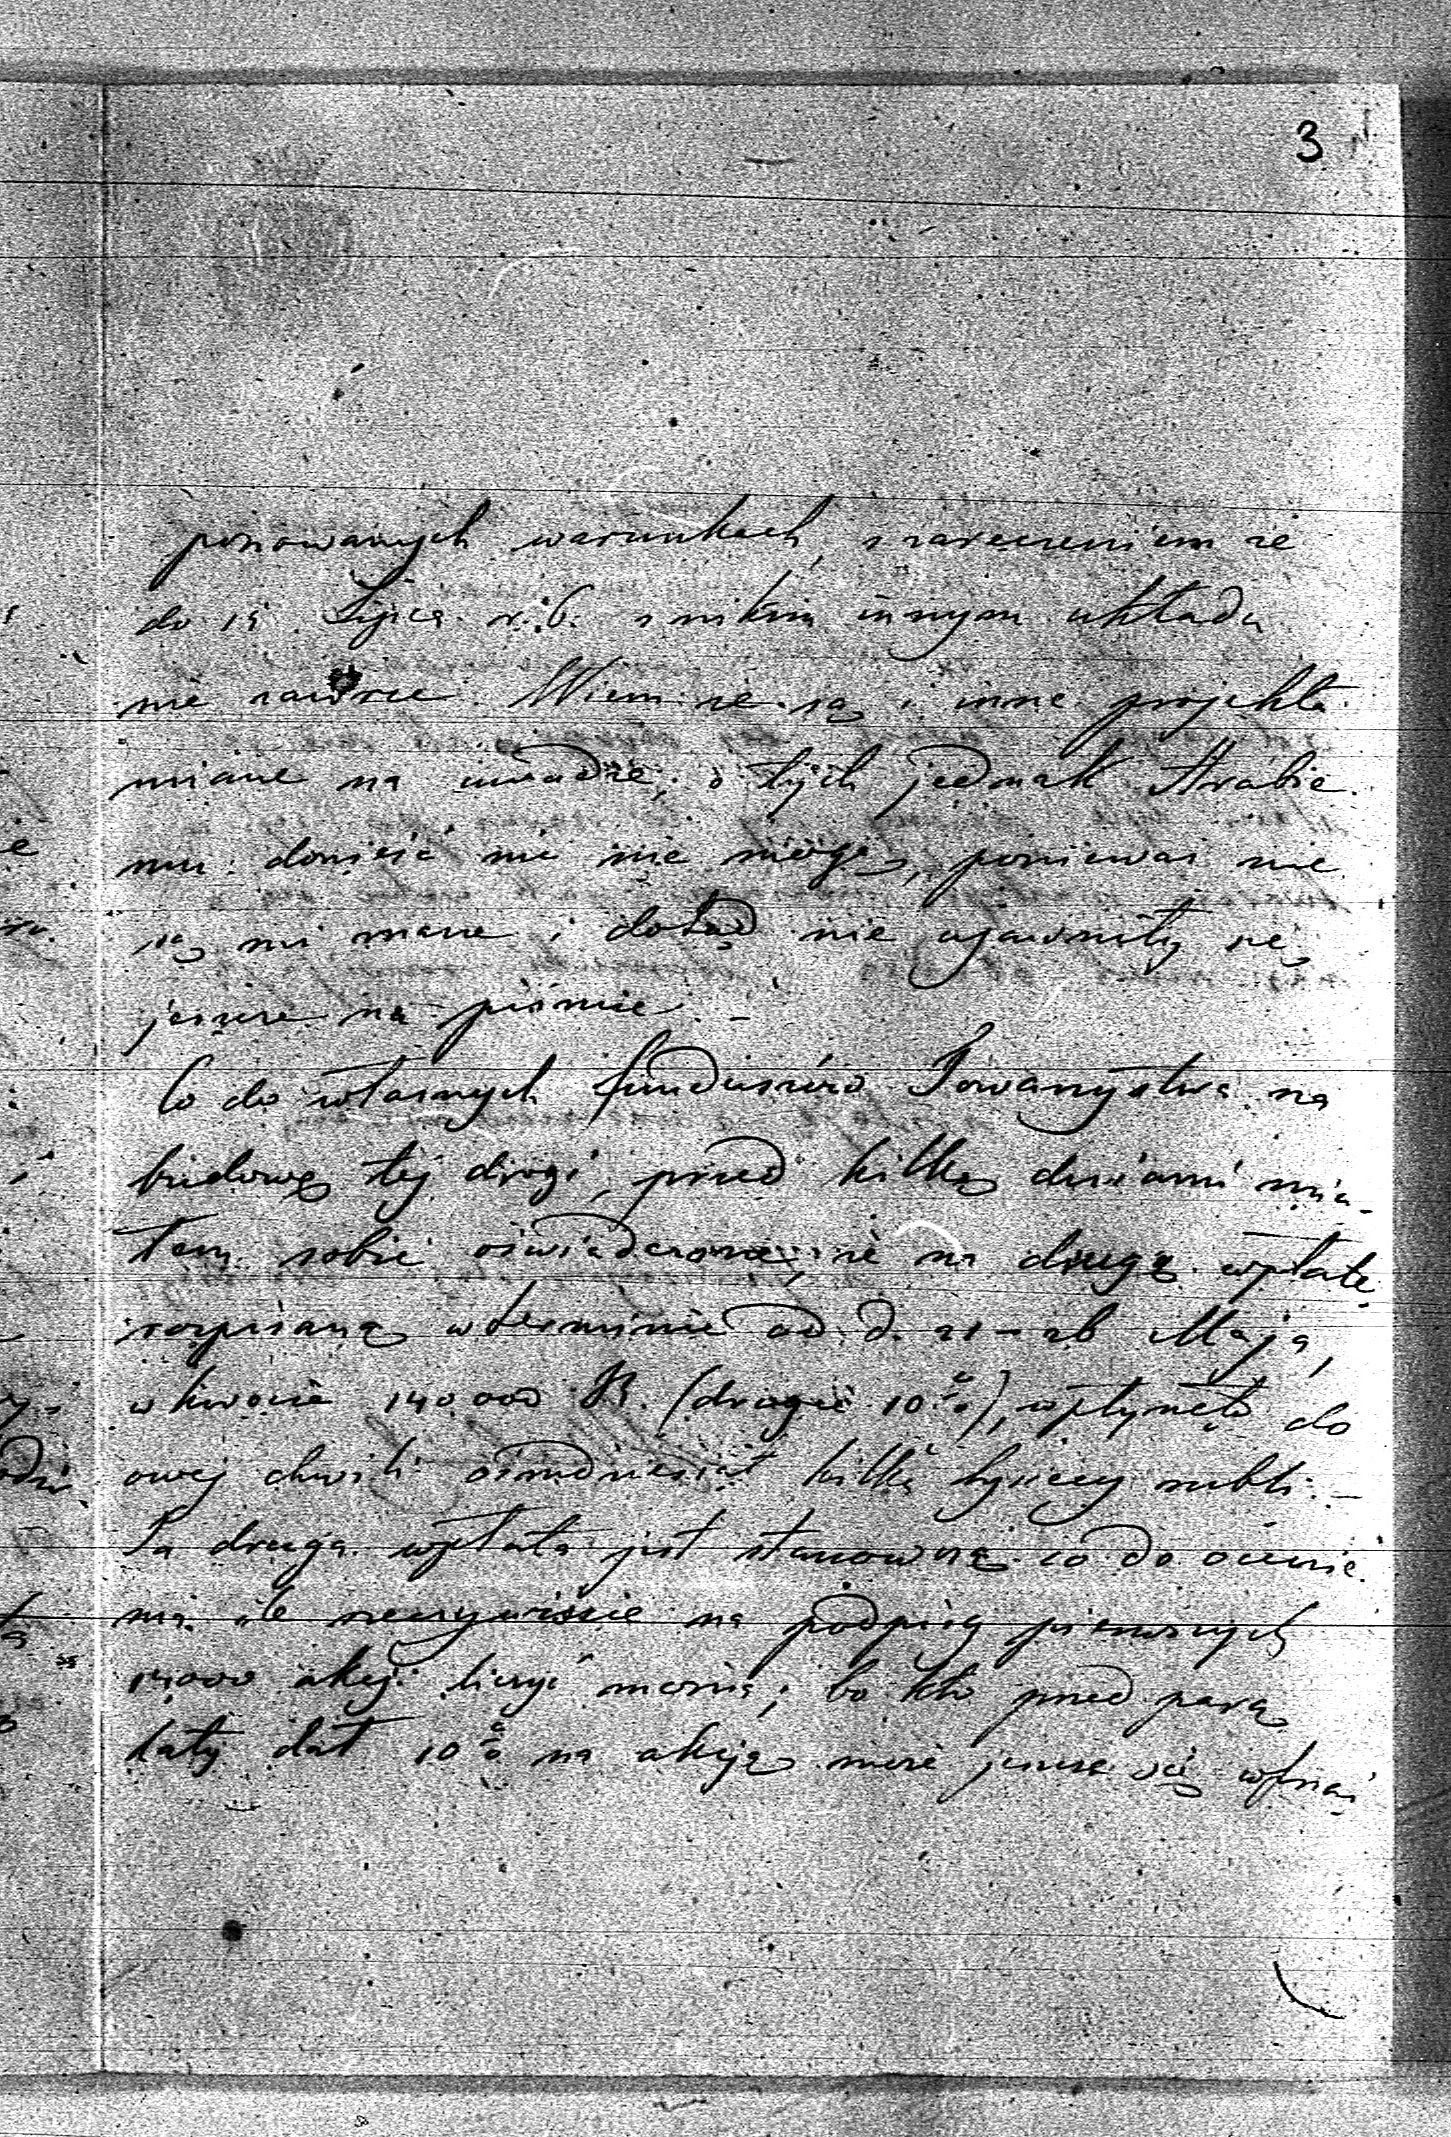 3
ponowanych warunkach, z zaręczeniem że
do 15 Lipca r. b. z nikim innym układu
nie zawrze. Wiem że są i inne projekta
miane na uwadze; o tych jednak Hrabie
mu donieść nic nie mogę, ponieważ nie
są mi znane i dotąd nie ujawniły się
jeszcze na piśmie. –
Co do własnych funduszów Towarzystwa na
budowę tej drogi, przed kilką dniami mia-
łem sobie oświadczone, że na drugą wpłatę
rozpisaną w terminie od d. 21–26 Maja,
w kwocie 140000 R. (drugie 10%), wpłynęło do
owej chwili ośmdziesiąt kilka tysięcy rubli. –
Ta druga wpłata jest stanowczą co do ocenie
nia ile rzeczywiście na podpisy pierwszych
14000 akcji liczyć można; bo kto przed parą
laty dał 10% na akcję może jeszcze się